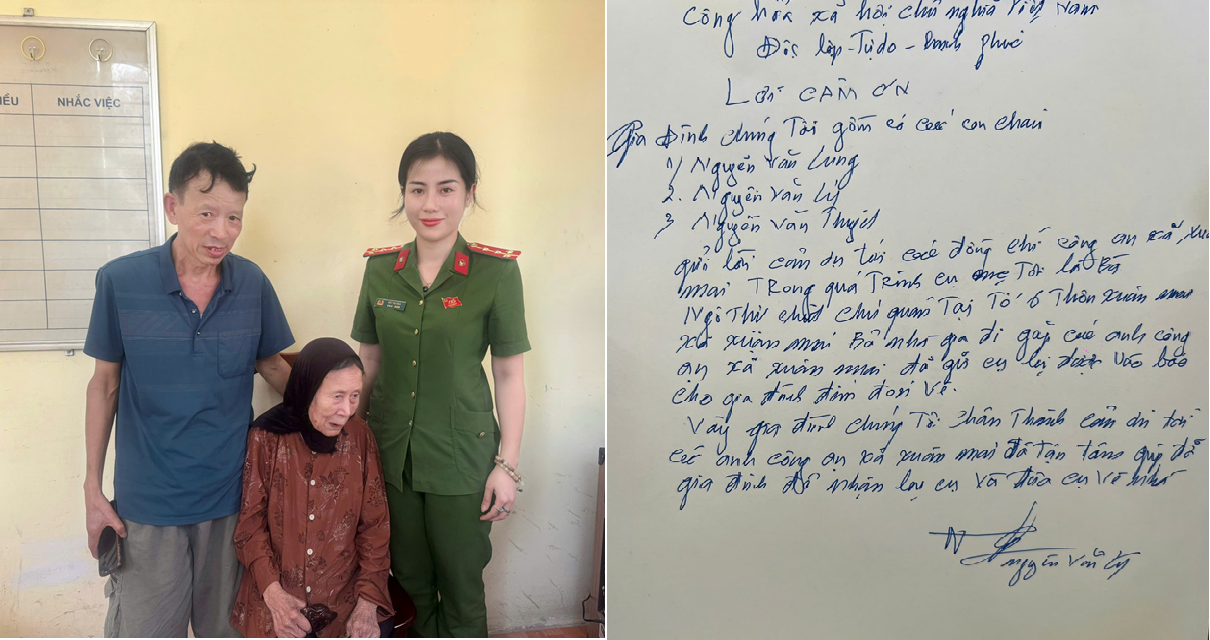 ỀU
NHẮC VIỆC
Cộng hòa xã hội chủ nghĩa Việt Nam
Độc lập - Tự do - Hạnh phúc
LỜI CẢM ƠN
Gia Đình chúng Tôi gồm có các con
1) Nguyễn Văn Lung
2. Nguyễn Văn Lý
3 Nguyễn Văn Thuyết
gửi lời cảm ơn tới các đồng chí công an xã xuân
mai Trong quá Trình cụ mẹ Tôi là Bà
Ngô Thị chú quán Tại Tổ 6 Thôn xuân mai
xã xuân mai Bà nhớ gia đi gặp các anh công
an xã xuân mai đã giữ cụ lại được báo
cho gia đình đến đón về.
Vậy gia đình chúng Tôi chân Thành cảm ơn tới
các anh công an xã xuân mai đã tận tâm giúp đỡ
gia đình để nhận lại cụ và đưa cụ về nhà
Nguyễn Văn Lý